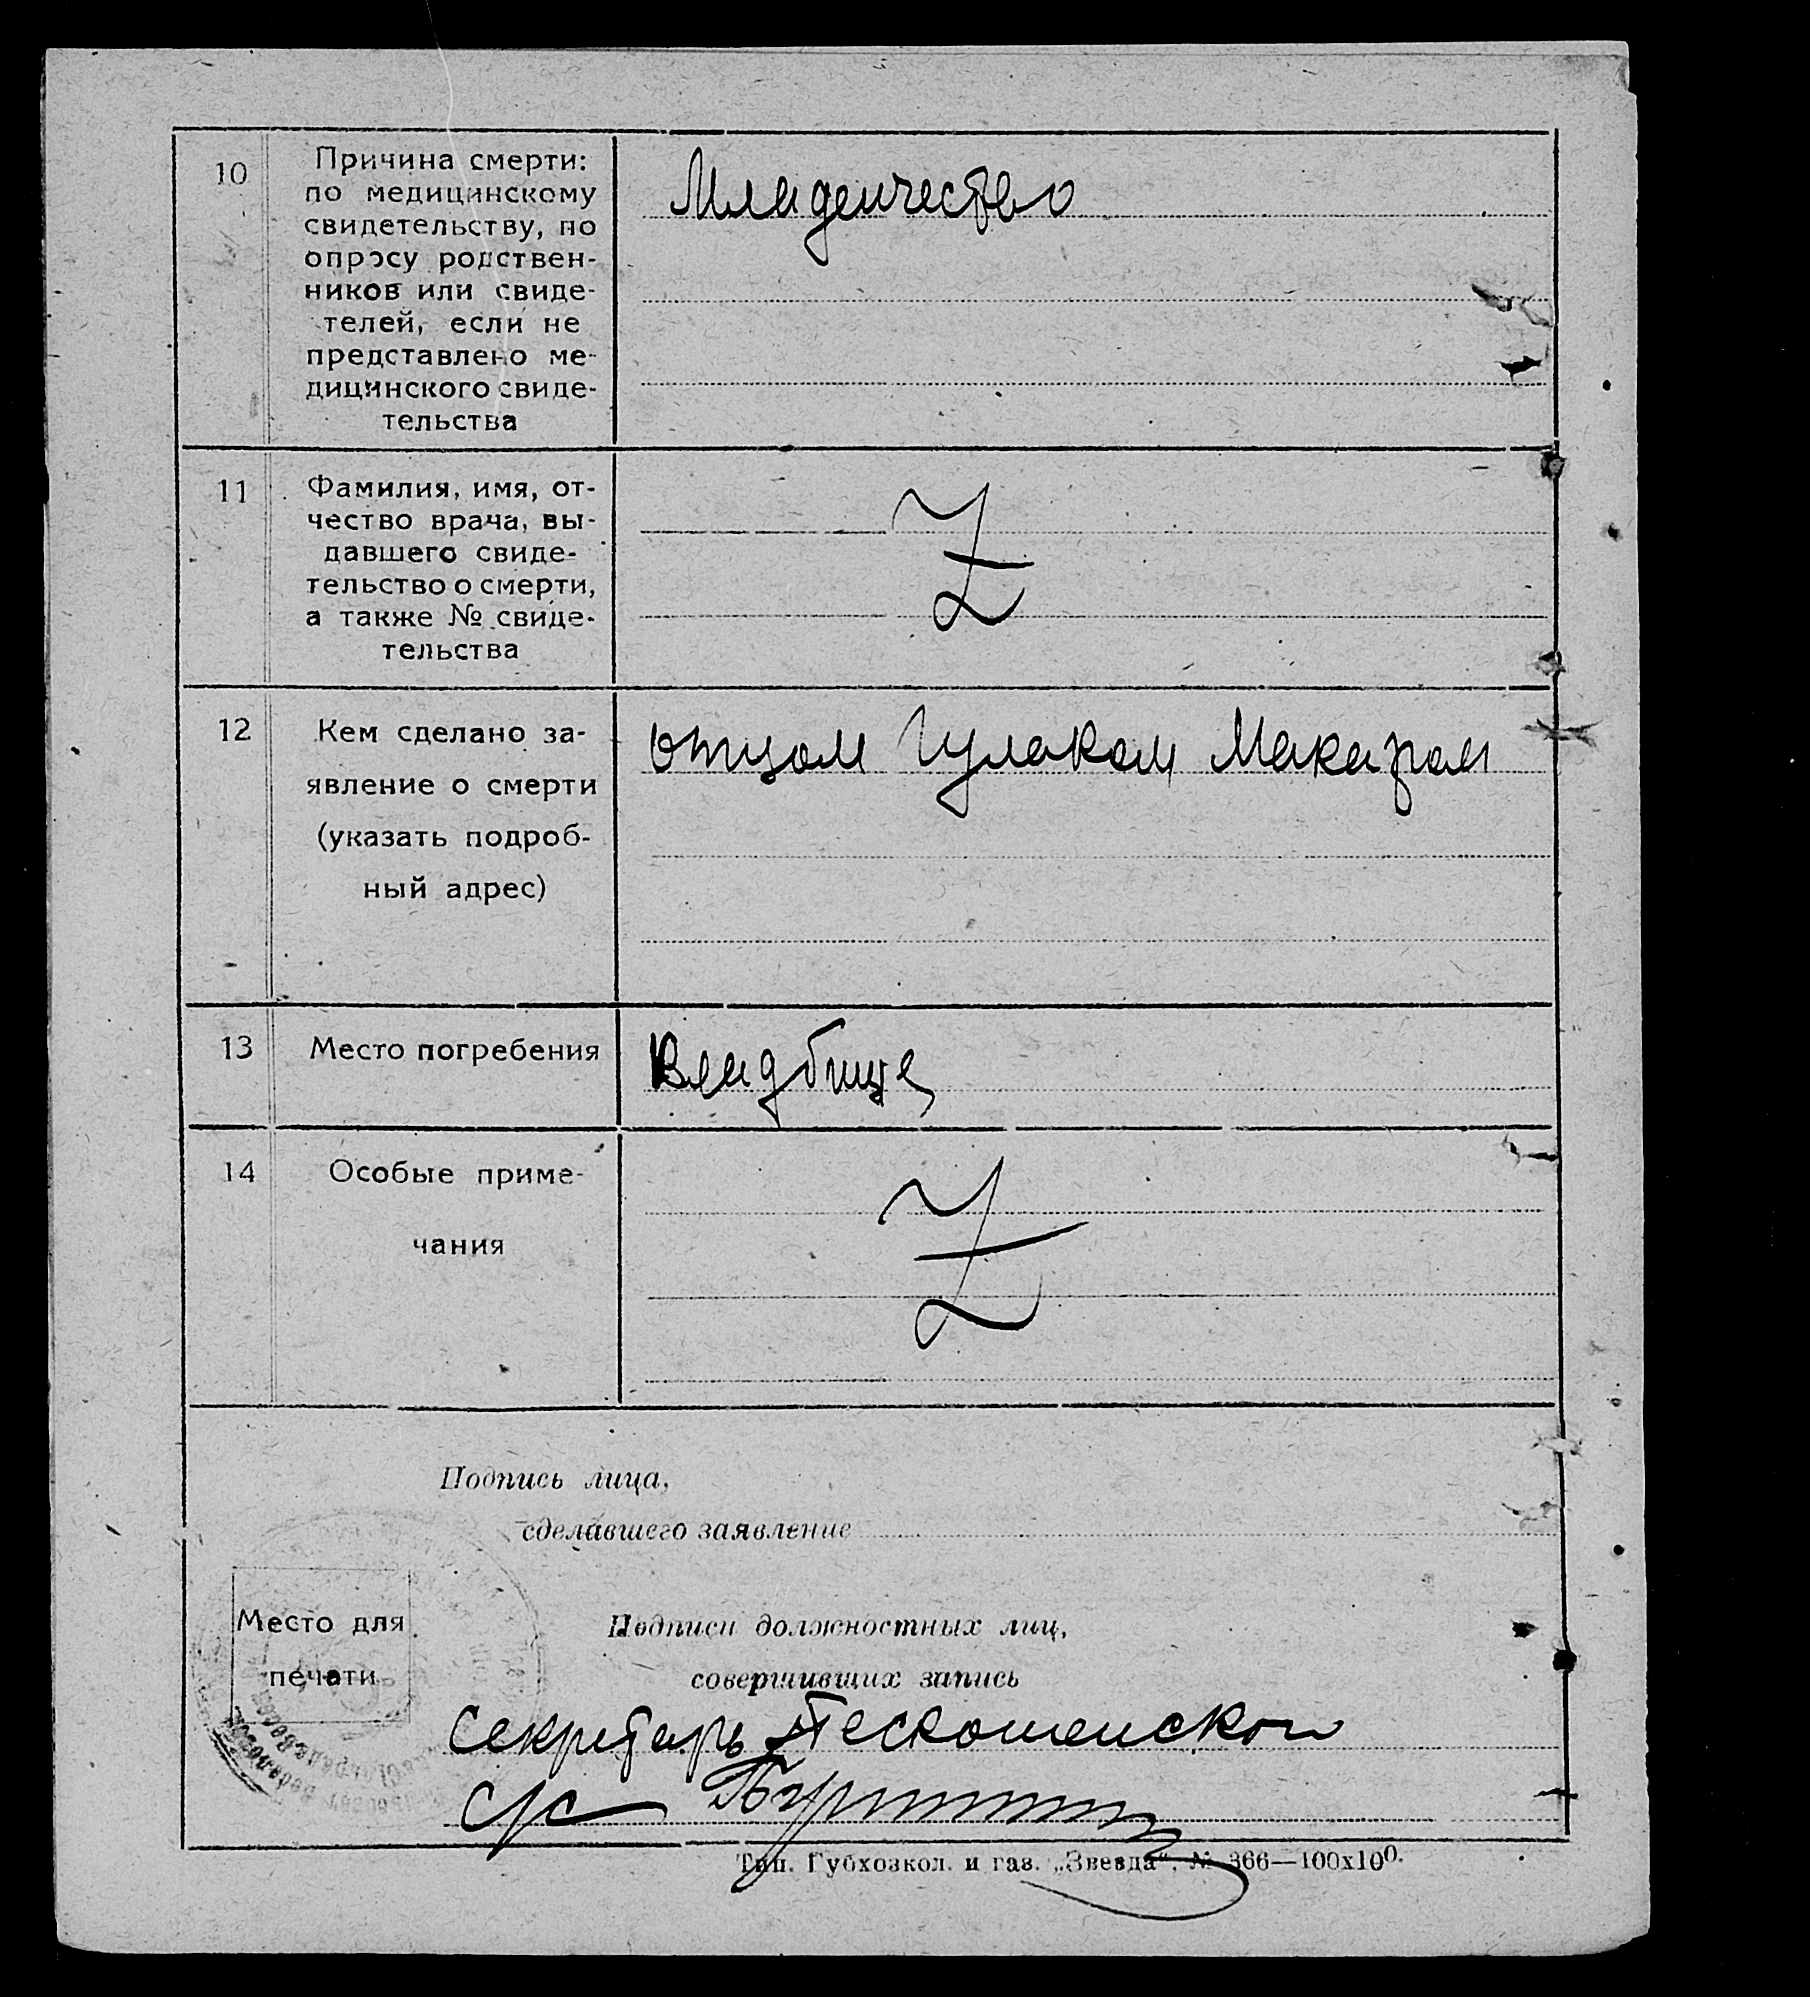 10
Причина смерти:
по медицинскому
свидетельству, по
опросу родствен-
ников или свиде-
телей, если не
представлено ме-
дицинского свиде-
тельства
Младенчество
11
Фамилия, имя, от-
чество врача, вы-
давшего свиде-
тельство о смерти,
а также № свиде-
тельства
Z
12
Кем сделано за-
явление о смерти
(указать подроб-
ный адрес)
отцом Гулаком Макаром
13
Место погребения
Кладбище
14
Особые приме-
чания
Z
Подпись лица,
сделавшего заявление
Место для
печати
Подписи должностных лиц,
совершивших запись
Секретарь
с/с
Тип. Губхозкол. и газ. „Звезда“. № 366—100х100.